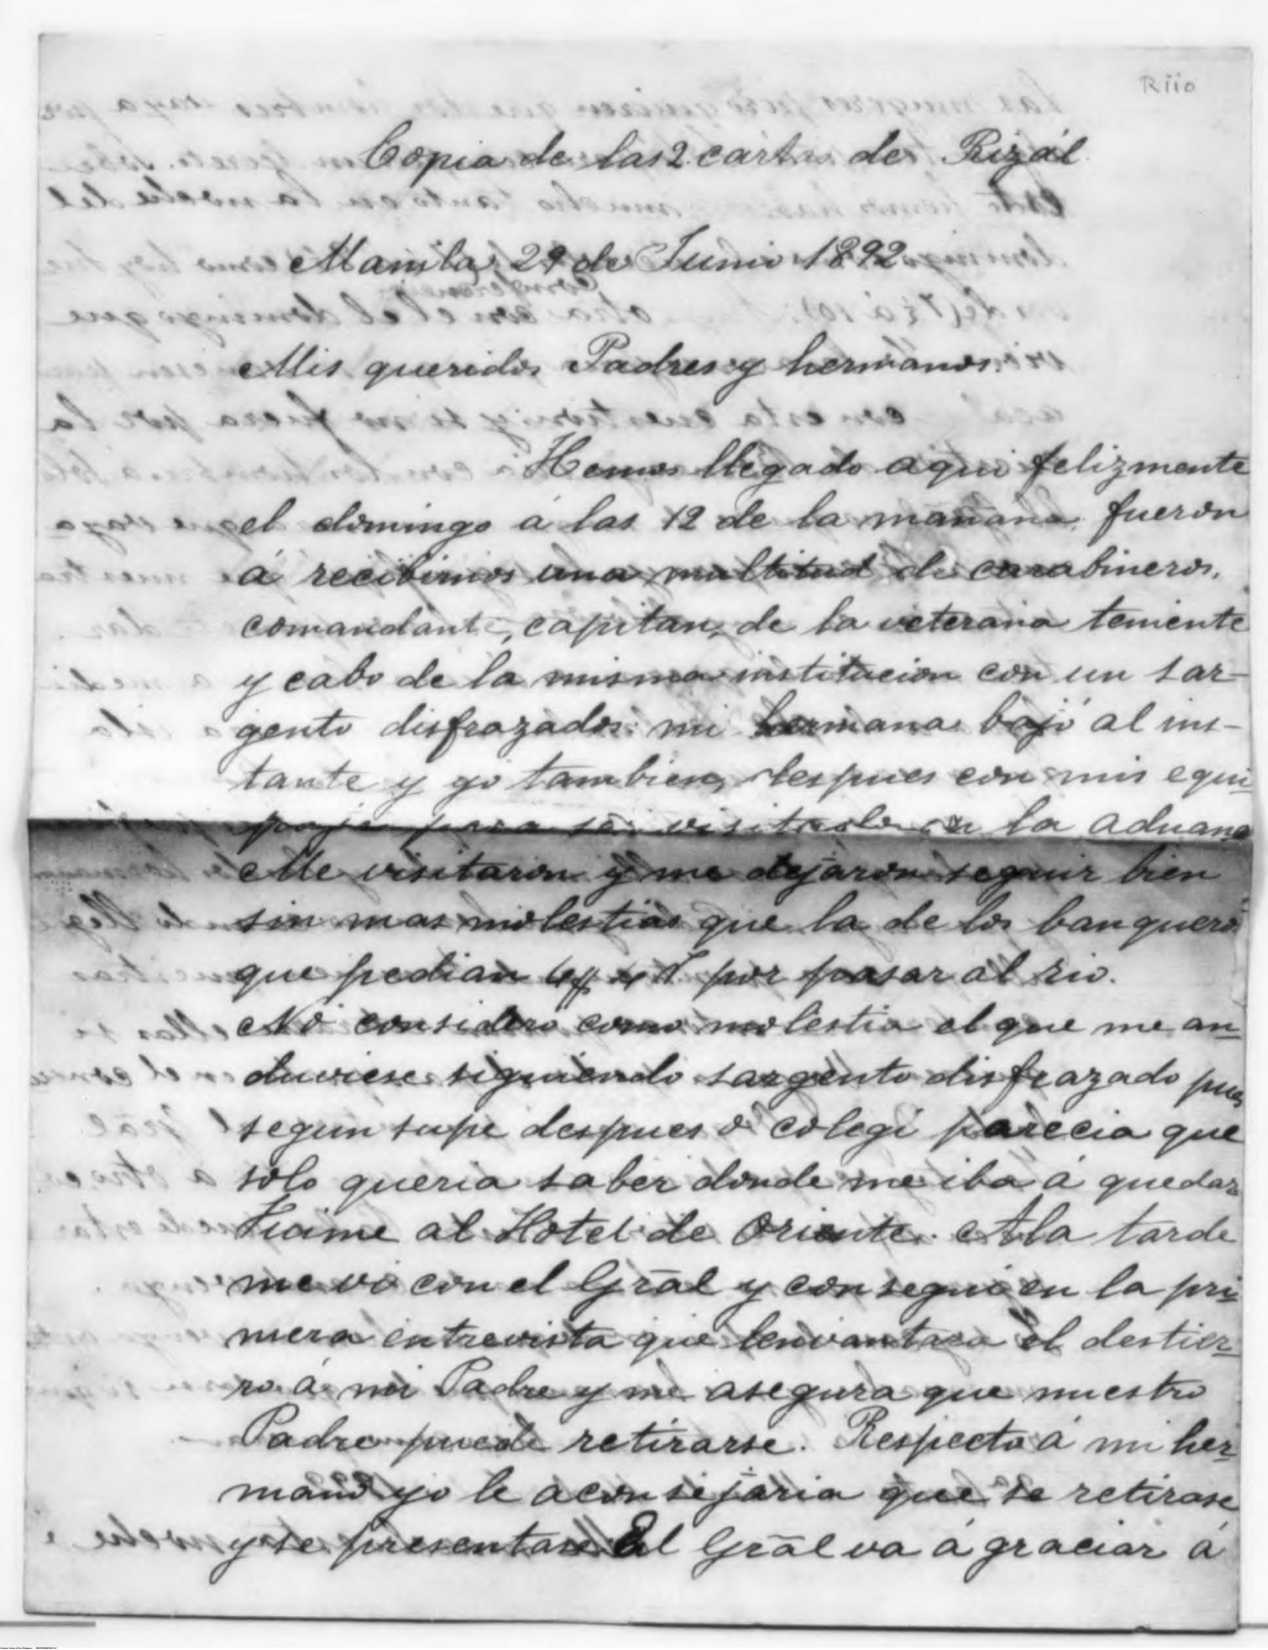 Riio
Copia de las 2 cartas de Rizál
Manila, 29 de Junio 1892
Mis queridos Padres y hermanos.
Hemos llegado aqui felizmente
el domingo á las 12 de la mañana fueron
á recibirnos una multitud de carabineros,
comandante, capitan, de la veterana teniente
y cabo de la misma institucion con un sar-
gento disfrazados: mi hermana bajó al ins-
tante y yo tambien, despues con mis equi-
paje para ser visitado en la aduana
Me visitaron y me dejaron seguir bien
sin mas molestias que la de los banquero
que pedian por pasar al rio.
No considero como molestia el que me an-
duviese siguiendo sargento disfrazado pues
segun supe despues ó colegi parecia que
solo queria saber donde me iba á quedar
Fuime al Hotel de Oriente. A la tarde
me vi con el Gral y consegui en la pri-
mera entrevista que lenvantara el destier-
ro á mi Padre y me asegura que nuestro
Padre puede retirarse. Respecto á mi her-
mano yo le aconsejaria que se retirase
y se presentase El Gral va á graciar á